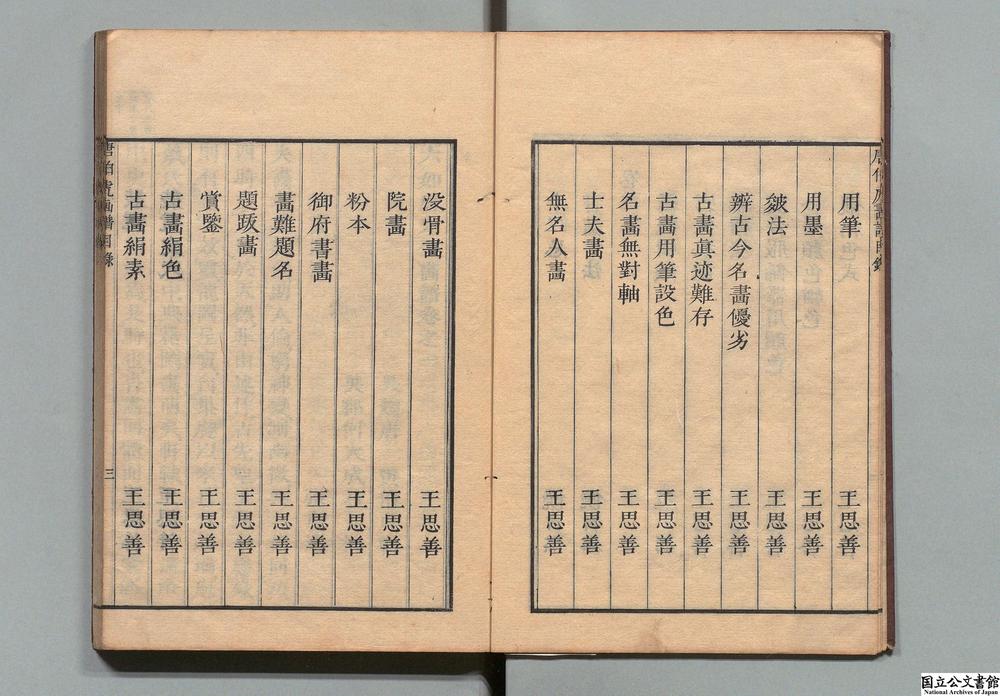 用筆 王思善
用墨 王思善
皴法 王思善
辨古今名畫優劣 王思善
古畫真迹難存 王思善
古畫用筆設色 王思善
名畫無對軸 王思善
士夫畫 王思善
無名人畫 王思善
没骨畫 王思善
院畫 王思善
粉本 王思善
御府書畫 王思善
畫難題名 王思善
題跋畫 王思善
賞鑒 王思善
古畫絹色 王思善
古畫絹素 王思善
唐伯虎画譜目錄
三
国立公文書館
National Archives of Japan